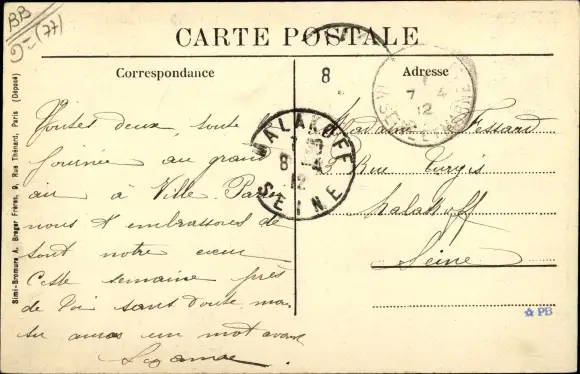 BB
(77)
CARTE POSTALE
Correspondance
Adresse
8
7 4
12
SEINE-ET-MARNE
MALAKOFF
8 - 4
12
SEINE
Toutes deux, toute
journée au grand
air à Ville Parisis
nous t'embrassons de
tout notre cœur
Cette semaine près
de toi sans doute ma
tu auras un mot avant
Madame Tessard
3 Rue Turgis
Malakoff
Seine
PB
Simi-Bromure A. Breger Frères, 9, Rue Thénard, Paris (Déposé)